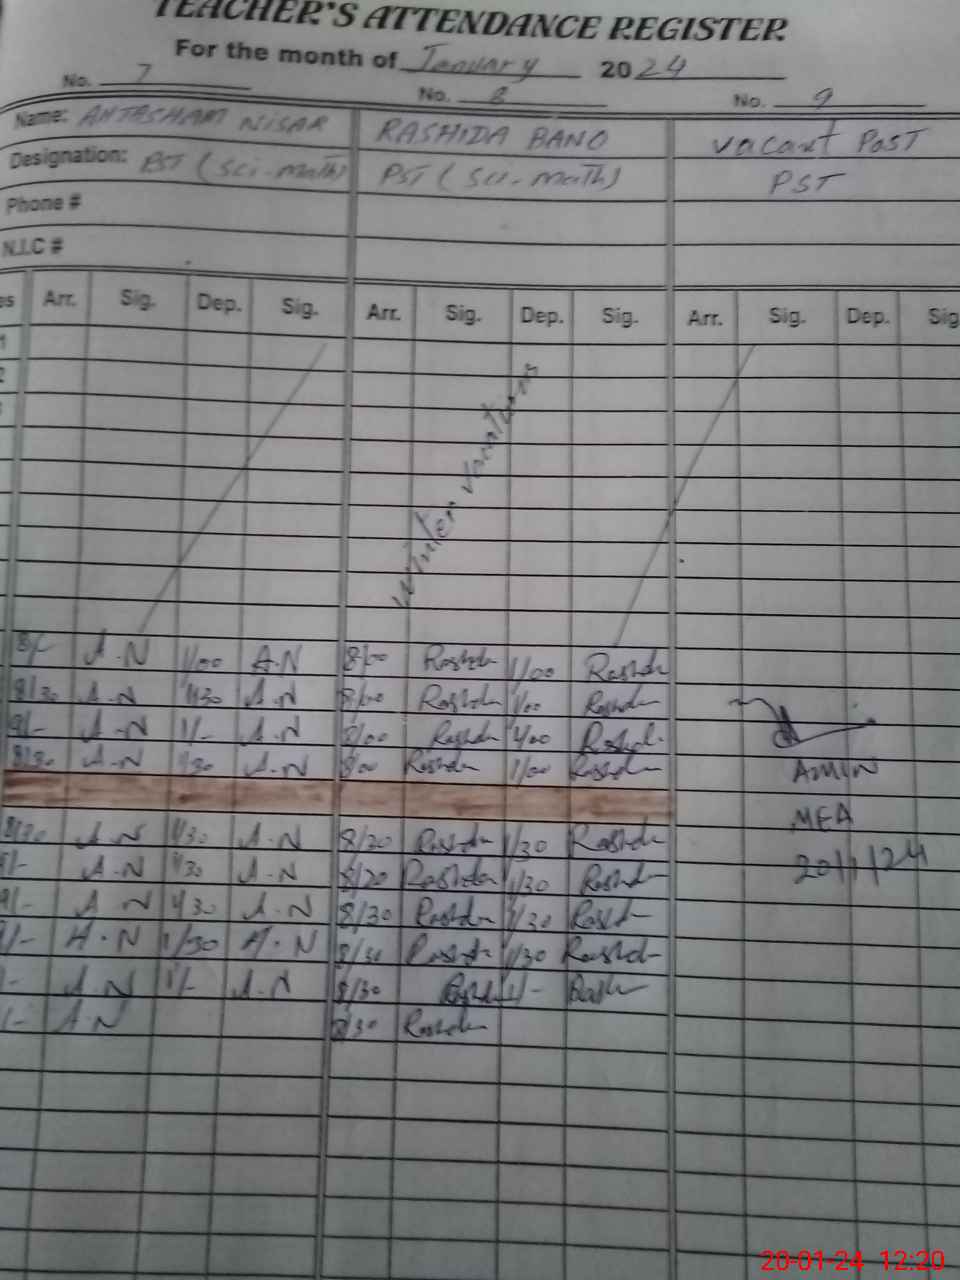 TEACHER'S ATTENDANCE REGISTER
For the month of January 2024
No. 7 No. 8 No. 9
Name: AHTESHAM NISAR RASHIDA BANO vacant Post
Designation: PST (Sci-math) PST (Sci-math) PST
Phone #
N.I.C #
es Arr. Sig. Dep. Sig. Arr. Sig. Dep. Sig. Arr. Sig. Dep. Sig
1
2
winter vacations
8/- A.N 1/00 A.N 8/00 Rashda 1/00 Rashda
8/30 A.N 1/30 A.N 8/00 Rashda 1/00 Rashda
9/- A.N 1/- A.N 8/00 Rashda 1/00 Rashda
8/30 A.N 1/30 A.N 8/00 Rashda 1/00 Rashda
AMIN
MEA
8/30 A.N 1/30 A.N 8/30 Rashda 1/30 Rashda
20/1/24
A.N 1/30 A.N 8/30 Rashda 1/30 Rashda
9/- A.N 1/30 A.N 8/30 Rashda 1/30 Rashda
A.N 1/30 A.N 8/30 Rashda 1/30 Rashda
A.N 1/- A.N 8/30 1/-
A.N 8/30 Rashda
20-01-24 12:20